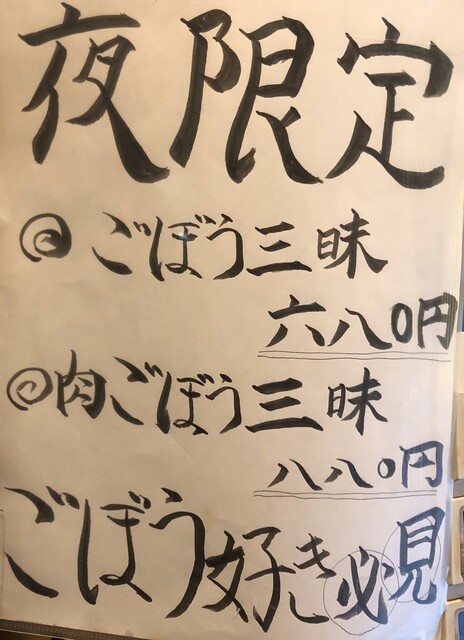 夜限定
◎ごぼう三昧
六八〇円
◎肉ごぼう三昧
八八〇円
ごぼう好き必見